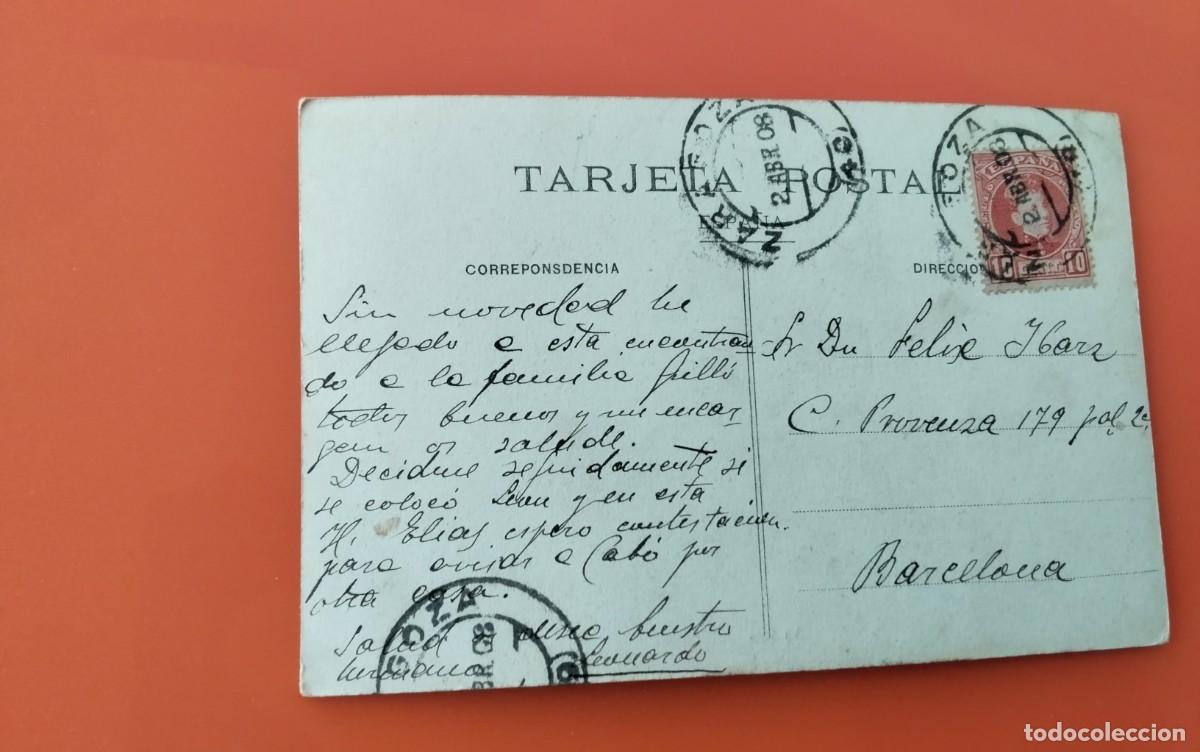 TARJETA POSTAL
ESPAÑA
CORREPONSDENCIA
DIRECCION
ESPAÑA
10
2 ABR 08
2 ABR 08
Sin novedad he
llegado a esta encontran-
do a la familia Grilló
todos buenos y me encar
gan os salude.
Decidme seguidamente si
se colocó Leon y en esta
H. Elias espero contestacion.
para avisar a Cabó por
otra casa.
Salud os desea buestro
hermano Leonardo
Sr Dn Felix Ibarz
C. Provenza 179 pal 2ª
Barcelona
GOZA
BR 08
todocoleccion